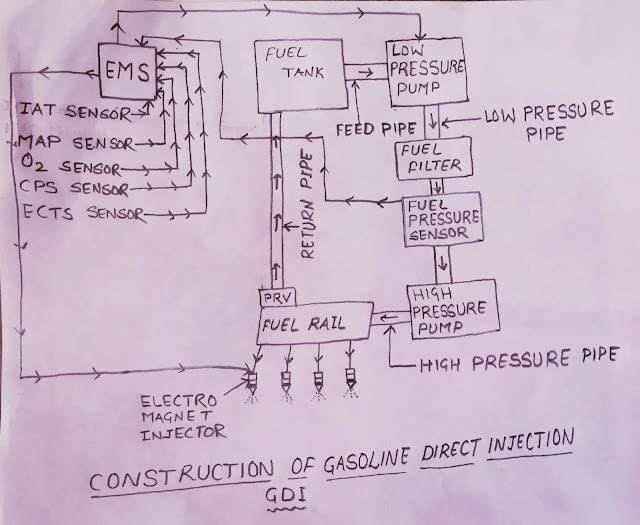 EMS
FUEL
TANK
LOW
PRESSURE
PUMP
FEED PIPE
LOW PRESSURE
PIPE
IAT SENSOR
MAP SENSOR
O2 SENSOR
CPS SENSOR
ECTS SENSOR
FUEL
FILTER
FUEL
PRESSURE
SENSOR
RETURN PIPE
PRV
FUEL RAIL
HIGH
PRESSURE
PUMP
HIGH PRESSURE PIPE
ELECTRO
MAGNET
INJECTOR
CONSTRUCTION OF GASOLINE DIRECT INJECTION
GDI